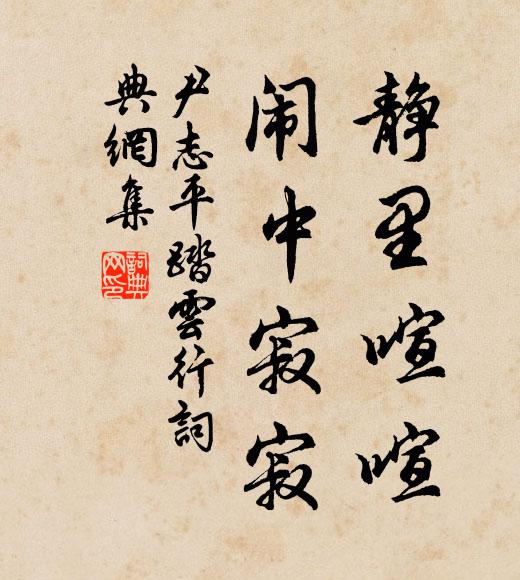 静里喧喧
闹中寂寂
尹志平踏雲行詞
典網集
詞典
网印